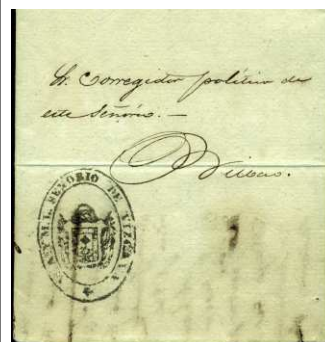 Sr. Corregidor político de
este Señorío. —
Bilbao.
M. L. SEÑORIO DE VIZCAYA